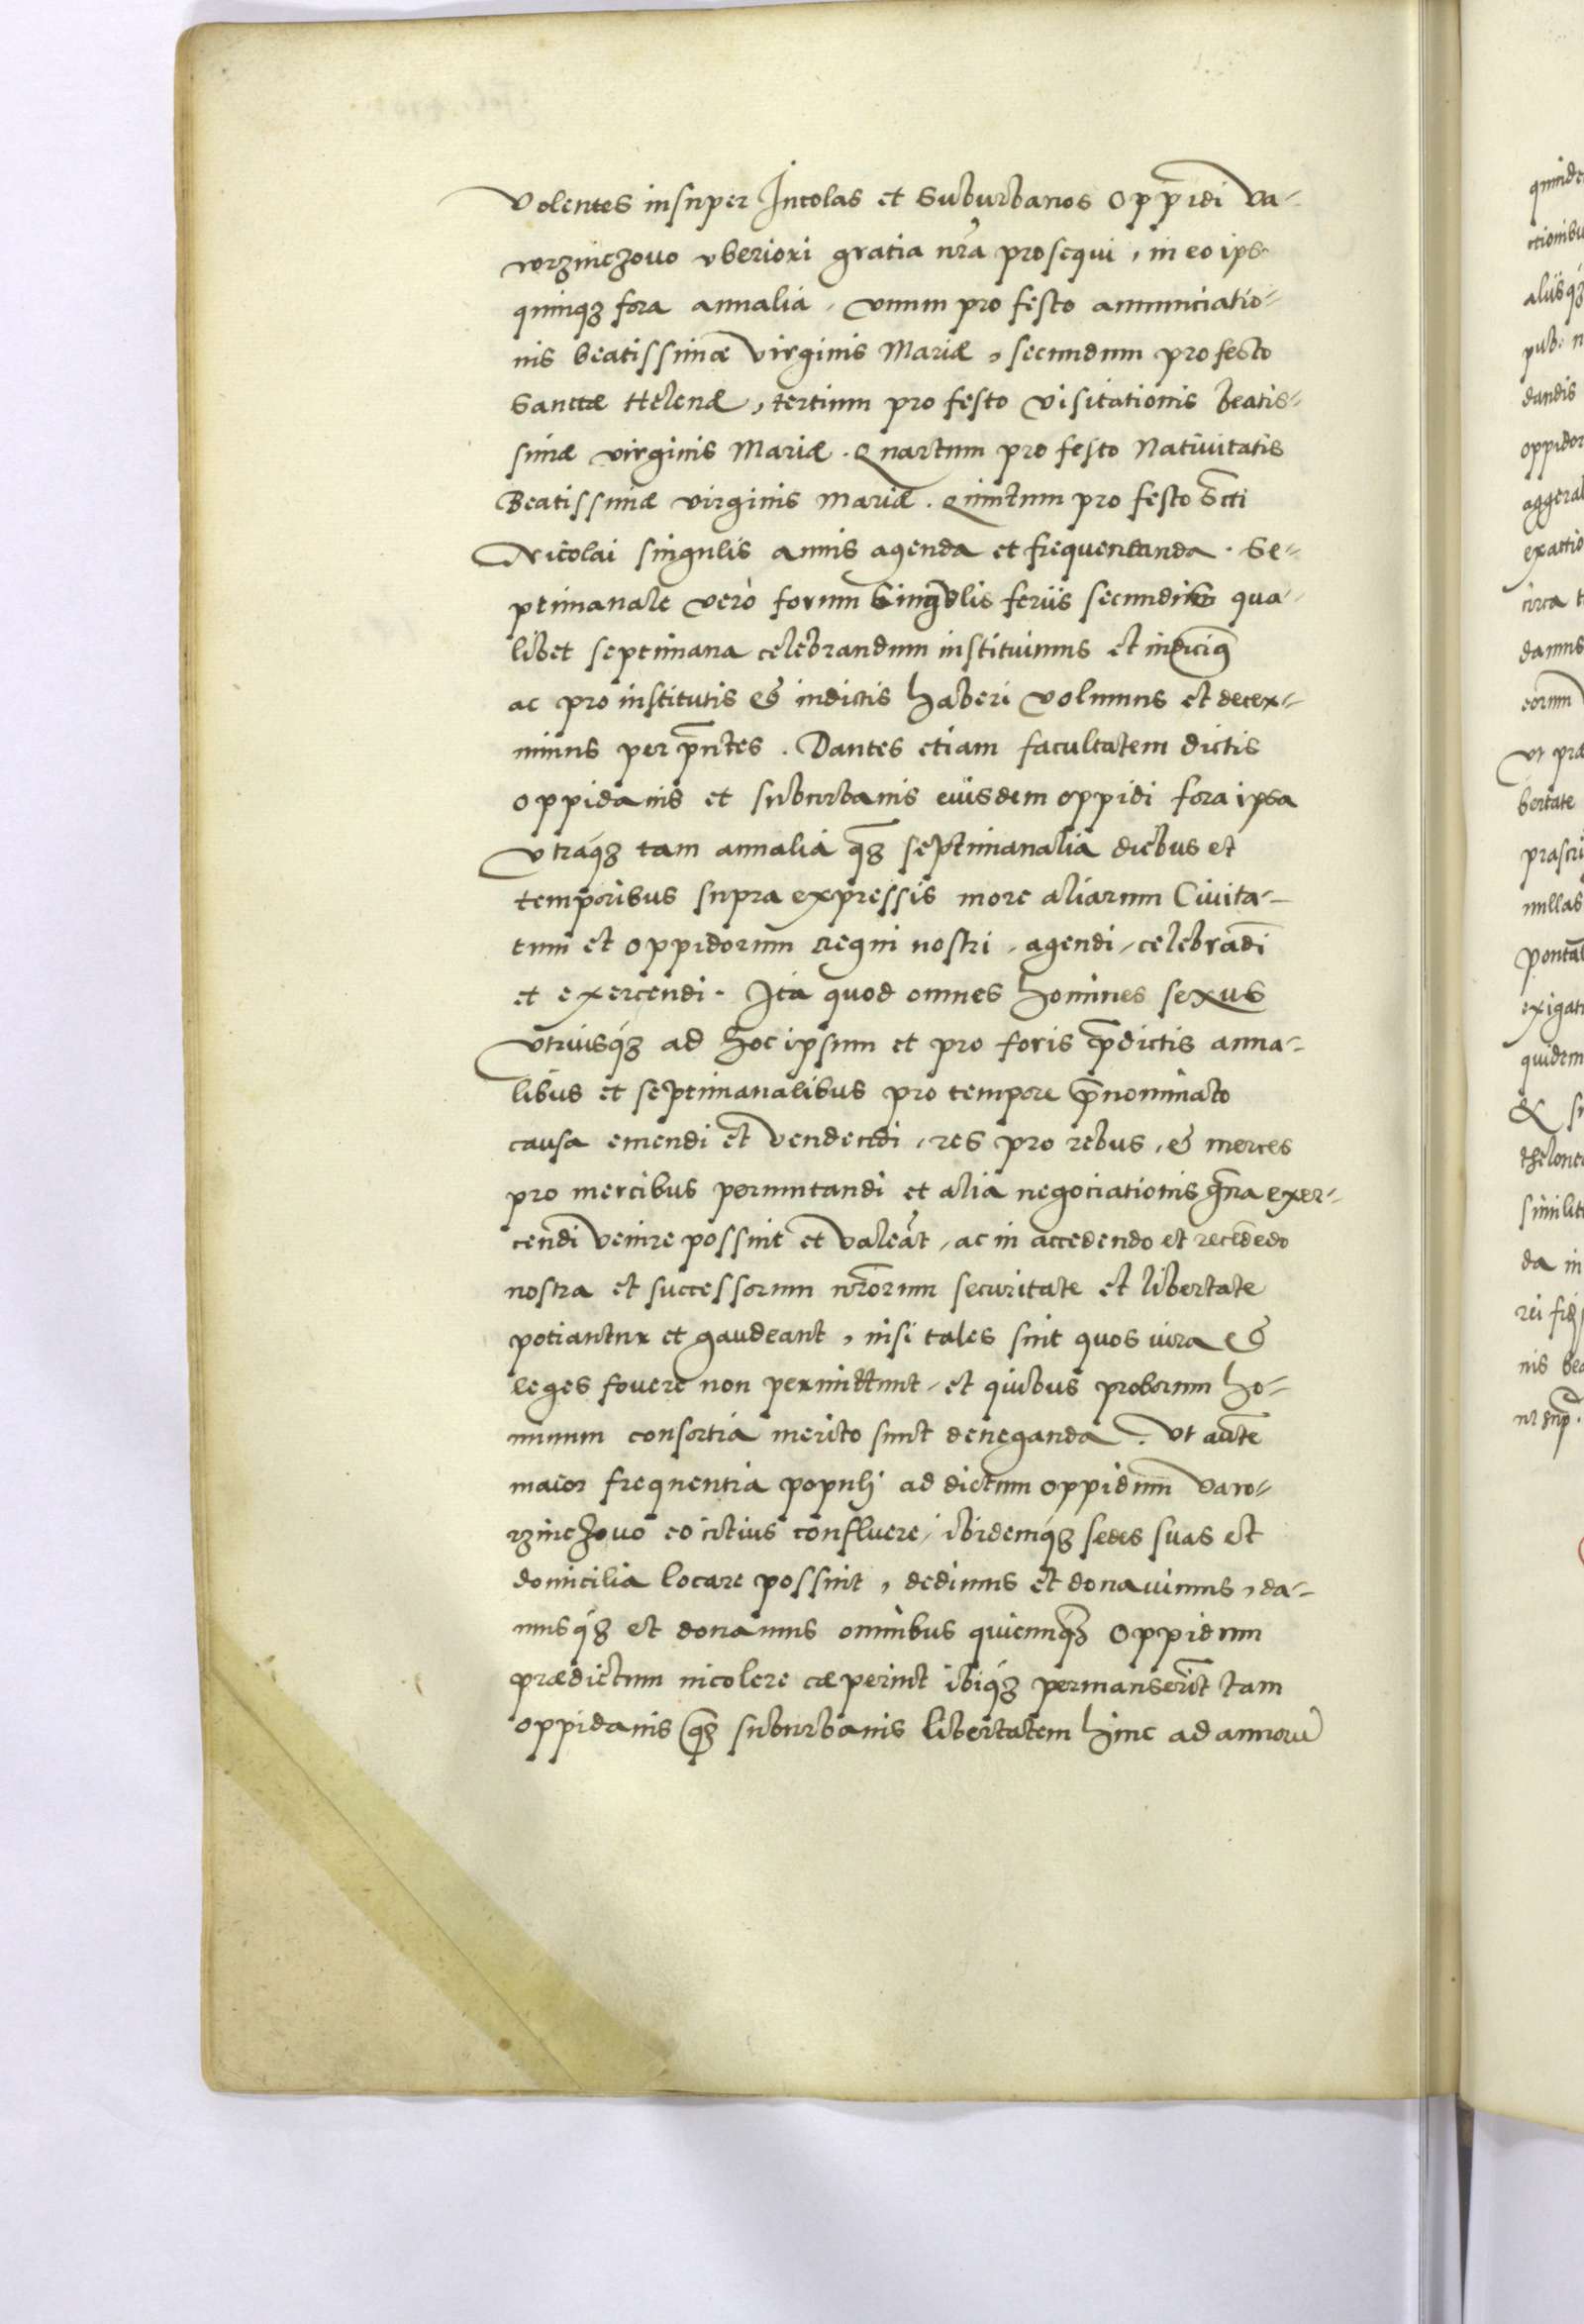 Volentes insuper Incolas et Suburbanos Oppidi Va-
worzinczouo vberiori gratia nr̃a prosequi, in eo ipso
quinqȝ fora annalia, vnum pro festo annunciatio-
nis beatissimæ Virginis Mariæ, secundum pro festo
Sanctæ Helenæ, tertium pro festo Visitationis Beatis-
simæ virginis Mariæ. Quartum pro festo Natiuitatis
Beatissimæ virginis Mariæ. Quintum pro festo Scti
Nicolai singulis annis agenda et frequentanda. Se-
ptimanale verò forum singulis feriis secundis qua-
libet septimana celebrandum instituimus et indicimꝰ
ac pro institutis & indictis haberi volumus et decer-
nimus per pñtes. Dantes etiam facultatem dictis
oppidanis et suburbanis eiusdem oppidi fora ipsa
vtraqȝ tam annalia qȝ septimanalia diebus et
temporibus supra expressis more aliarum Ciuita-
tum et oppidorum Regni nostri, agendi, celebrãdi
et exercendi. Ita quod omnes homines sexus
vtriusqȝ ad hoc ipsum et pro foris p̃dictis anna-
libus et septimanalibus pro tempore p̃nominato
causa emendi et vendendi, res pro rebus, & merces
pro mercibus permutandi et alia negociationis gña exer-
cendi venire possint et valeãt, ac in accedendo et recedẽdo
nostra et successorum nr̃orum securitate et libertate
potiantur et gaudeant, nisi tales sint quos iura &
leges fouere non permittunt, et quibus proborum ho-
minum consortia merito sunt deneganda. Vt autẽ
maior frequentia populi ad dictum oppidum Vawo-
rzinczouo eo citius confluere, ibidemqȝ sedes suas et
domicilia locare possint, dedimus et donauimus, da-
musqȝ et donamus omnibus quicunqȝ Oppidum
prædictum incolere cæperint ibiqȝ permanserĩt tam
oppidanis qȝ suburbanis libertatem hinc ad annorũ